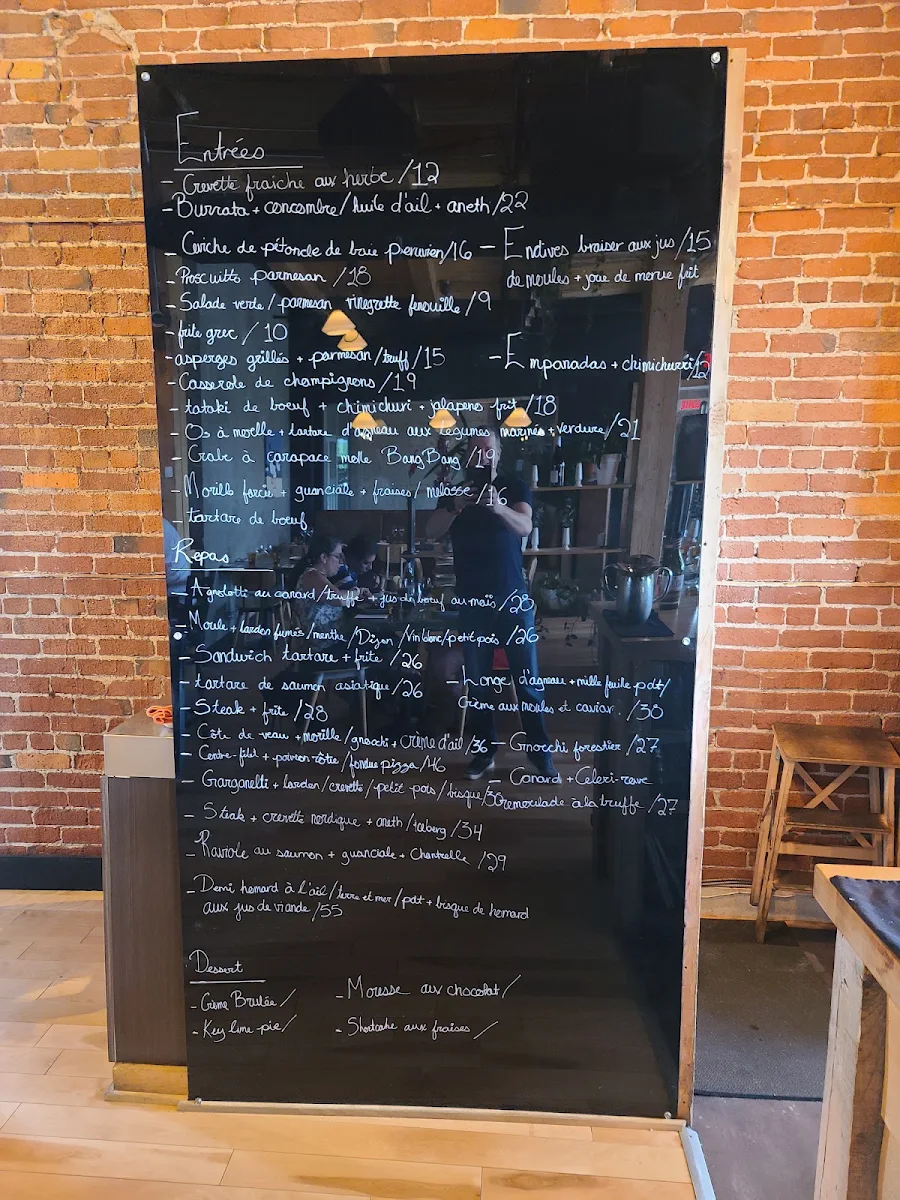 Entrées
- Crevette fraiche aux herbe /12
- Burrata + concombre / huile d'ail + aneth /22
- Ceviche de pétoncle de baie peruvien /16
- Endives braiser aux jus /15
de moules + joue de merue frit
- Proscuitto parmesan /18
- Salade verte / parmesan vinegrette fenouille /9
- frite grec / 10
- asperges grillés + parmesan / truff /15
- Empanadas + chimichurri /12
- Casserole de champignons /19
- tataki de boeuf + chimichuri + jalapenos frit /18
- Os à moelle + tartare d'agneau aux légumes marinés + verdure /21
- Crabe à carapace molle Bang Bang /19
- Morille farcie + guanciale + fraises / melasse /16
- tartare de boeuf
Repas
- Agnolotti au canard / truffe + jus de boeuf au maïs /28
- Moule + lardon fumés / menthe / Dijon / Vin blanc / petit pois /26
- Sandwich tartare + frite /26
- tartare de saumon asiatique /26
- Longe d'agneau + mille feuille pdt /
Crème aux moules et caviar. /38
- Steak + frite /28
- Côte de veau + morille / gnocchi + crème d'ail /36
- Gnocchi forestier /27
- Contre-filet + poivron rôtie / fondue pizza /46
- Canard + Céleri-rave
remoulade à la truffe /27
- Garganelli + lardon / crevette / petit pois / bisque /30
- Steak + crevette nordique + aneth / iceberg /34
- Raviole au saumon + guanciale + Chantrelle /29
- Demi homard à l'ail / terre et mer / pdt + bisque de homard
aux jus de viande /55
Dessert
- Crème Brulée /
- Mousse aux chocolat /
- Key lime pie /
- Shortcake aux fraises /